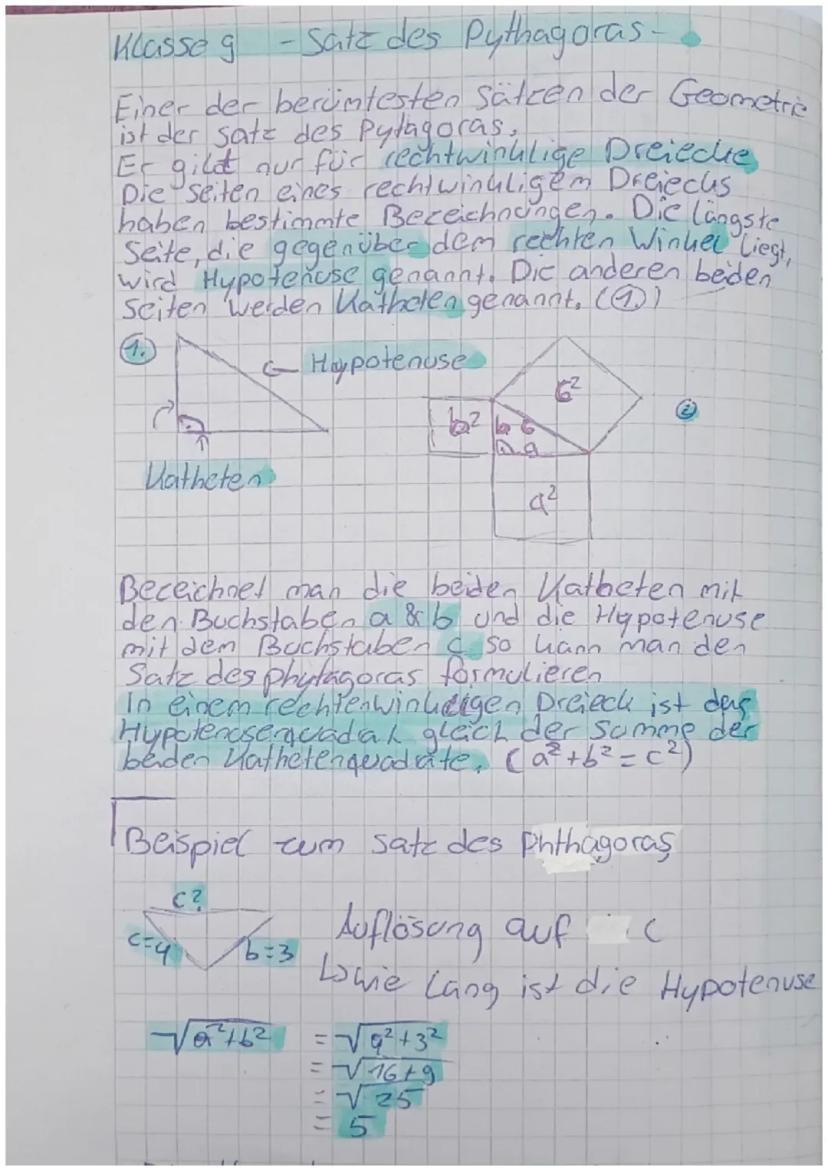 Klasse 9 - Satz des Pythagoras -
Einer der berümtesten Sätzen der Geometrie
ist der Satz des Pytagoras.
Er gildt nur für rechtwinklige Dreiecke
Die Seiten eines rechtwinkligem Dreiecks
haben bestimmte Bezeichnungen. Die längste
Seite, die gegenüber dem rechten Winkel liegt,
wird Hypotenuse genannt. Die anderen beiden
Seiten werden Katheten genannt. (①)
1.
Hypotenuse
Katheten
6²
2
b²
b 6
a
a²
Bezeichnet man die beiden Katheten mit
den Buchstaben a & b und die Hypotenuse
mit dem Buchstaben c so kann man den
Satz des phytagoras formulieren
In einem rechtenwinkeligen Dreieck ist das
Hypotenusenquadak gleich der Summe der
beiden Kathetenquadrate. (a²+b²=c²)
Beispiel zum Satz des Phthagoras
c?
c=4
b=3
Auflösung auf c
↳wie lang ist die Hypotenuse
√a²+b² = √9²+3²
= √16+9
= √25
= 5